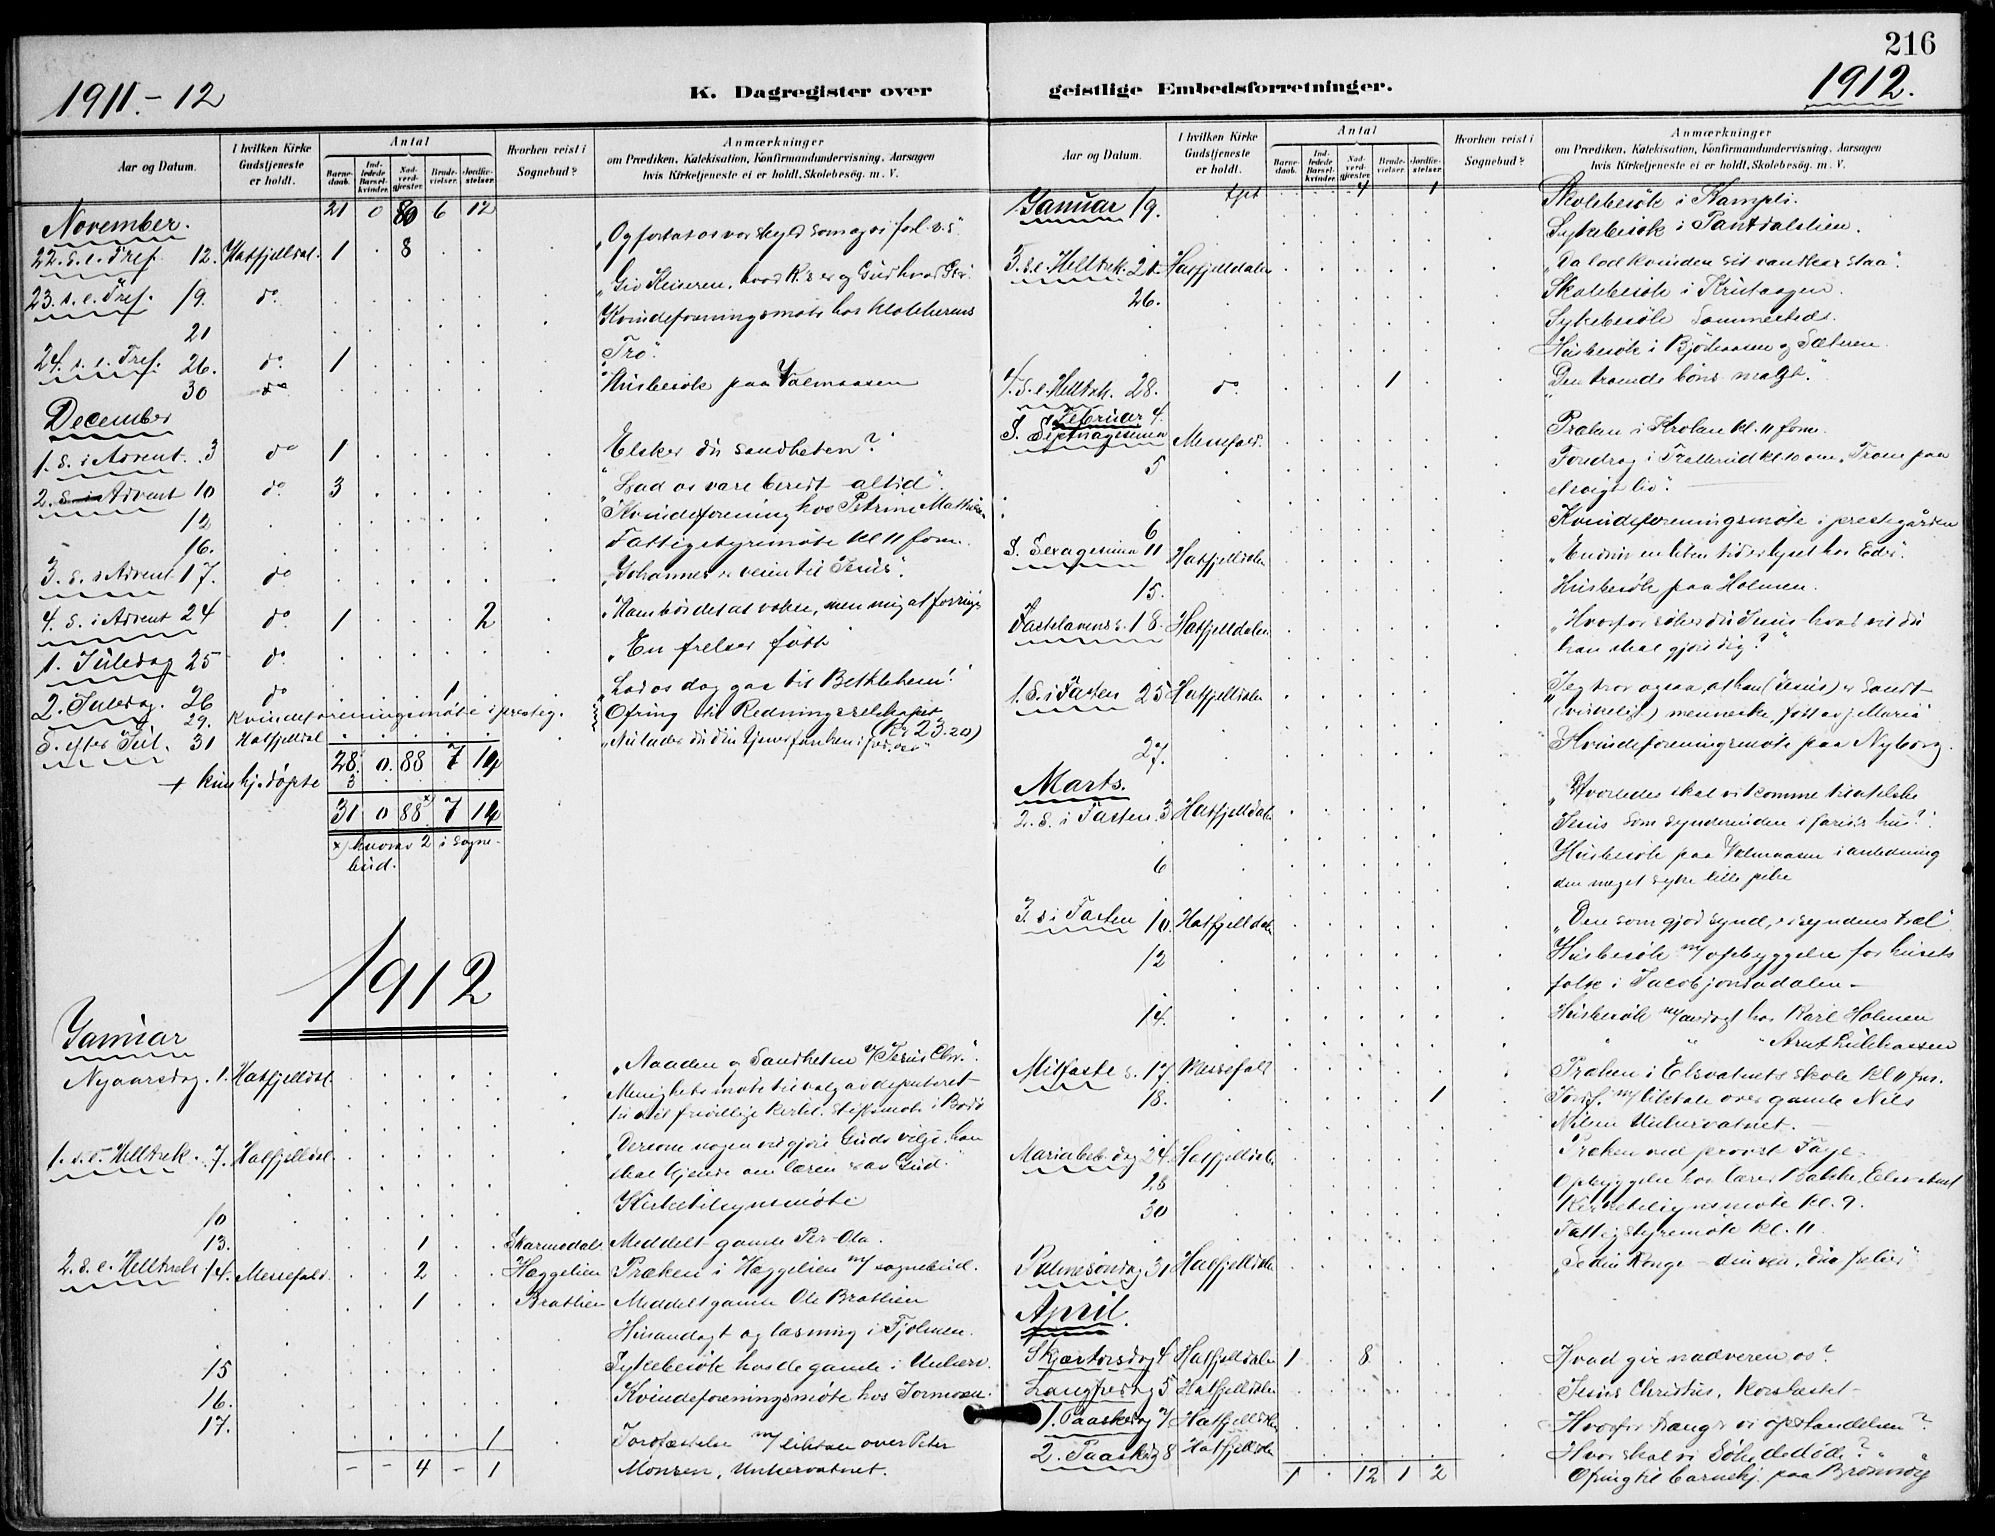 216
1911.-12
K. Dagregister over geistlige Embedsforretninger.
1912.
Aar og Datum.
I hvilken Kirke Gudstjeneste er holdt.
Antal
Barnedaab.
Indledede Barselkvinder.
Nadverdgjester.
Brudevielser.
Jordfæstelser.
Hvorhen reist i Sognebud?
Anmærkninger
om Prædiken, Katekisation, Konfirmandundervisning, Aarsagen
hvis Kirketjeneste ei er holdt, Skolebesøg. m. V.
November. 21 0 80 6 12
22. s. e. Tref. 12. Hatfjelldal. 1 8 "Og forlat os vor skyld som og vi forl. v. s."
23. s. e. Tref. 19. do "Giv Keiseren, hvad K.s er og Gud hvad G. er.
21 Kvindeforeningsmøte hos Klokkerens
24. s. e. Tref. 26. do 1 "Tro".
30 do Husbesøk paa Valmaasen
December
1. S. i Advent. 3 do 1 "Elsker du sandheten?"
2. S. i Advent 10 do 3 "Lad os være beredt altid".
12 Kvindeforening hos Petrine
16. Fattigstyremøte kl 11 form.
3. S. i Advent 17. do "Johannes's veien til Jesus".
4. S. i Advent 24 do 1 2 "Ham bør det at vokse, men mig at forringes
1. Juledag 25 do "En frelser født"
2. Juledag. 26 do 1 "Lad os dog gaa til Bethlehem!"
29. Kvindeforeningsmøte i presteg. Ofring til Redningsselskapet
S. efter Jul. 31 Hatfjelldal (Kr 23.20)
"Nu lader du din tjener fare hen i fred"
28 0 88 7 14
+ kun hj. døpte 3
31 0 88x 7 14
x) hvorav 2 i sogne-
bud.
1912
Januar
Nyaarsdag. 1. Hatfjelldal. "Naaden og Sandheten v/ Jesus Chr."
Menighetsmøte til valg av deputeret
til det frivillige kirkel. stiftsmøte i Bodø
1. s. e. Helltrek. 7. Hatfjelldal. "Dersom nogen vil gjøre Guds vilje, han
skal kjende om læren er av Gud."
10 Kirketilsynsmøte
13. 1 Skarmodal. Meddelt gamle Per-Ola.
2. s. e. Helltrek. 14. Messefald. 2 Hæggelien Præken i Hæggelien m/ sognebud.
1 Bratlien Meddelt gamle Ole Bratlien
Husandagt og læsning i Fjolmen.
15 Sykebesøk hos de gamle i Unkerv.
16. Kvindeforeningsmøte hos Tormoen.
17. 1 Jordfæstelse m/ liktale over Peter
- - 4 - 1 Monsen, Unkervatnet.
Aar og Datum.
I hvilken Kirke Gudstjeneste er holdt.
Antal
Barnedaab.
Indledede Barselkvinder.
Nadverdgjester.
Brudevielser.
Jordfæstelser.
Hvorhen reist i Sognebud?
Anmærkninger
om Prædiken, Katekisation, Konfirmandundervisning, Aarsagen
hvis Kirketjeneste ei er holdt, Skolebesøg. m. V.
Januar 19. 4 1 Skolebesøk i Kampli.
Sykebesøk i Pantdalslien.
3. s. e. Helltrek. 21. Hatfjelldalen "Da lod kvinden sit vandkar staa".
26. Skolebesøk i Krutaagen.
Sykebesøk sammesteds.
Husbesøk i og Sæteren.
4. s. e. Helltrek. 28. do 1 "Den troende bøns magt."
Februar 4.
S. Septuagesima Messefald. Præken i Kroken kl. 11 form.
5 Foredrag i kl. 10 om "Troen paa
et evigt liv".
6 Kvindeforeningsmøte i prestegården
S. Sexagesima 11 Hatfjelldalen "Endnu en liten tid er lyset hos Eder".
15. Husbesøk paa Holmen.
Fastelavens s. 18 Hatfjelldalen "Hvorfor søker du Jesus - hvad vil du
han skal gjøre dig?"
1. S. i Fasten 25 Hatfjelldalen "Jeg tror ogsaa, at han (Jesus) er sandt
(virkelig) menneske, født av j. Maria"
27. Kvindeforeningsmøte paa Nyborg.
Marts.
2. S. i Fasten. 3 Hatfjelldalen "Hvorledes skal vi komme til at elske
Jesus som synderinden i farisæerens hus?"
6 Husbesøk paa Valmaasen i anledning
den meget syke lille pike
3. s. i Fasten 10 Hatfjelldalen "Den som gjør synd, er syndens træl"
12 Husbesøk m/ opbyggelse for husets
folk i Jacobjonsadalen -
14. Husbesøk m/ andagt hos Karl Holmen
" " "
Midfaste s. 17 Messefald Præken i Elsvatnets skole kl 11 fm.
18. 1 Jordf. m/ liktale over gamle Nils
Nilsen Unkervatnet. -
Mariabeb. dag 24. Hatfjelldalen Præken ved provst Fage
28 Opbyggelse hos lærer Bakke, Elsvatnet
30 Kirketilsynsmøte kl. 9.
Fattigstyremøte kl. 11.
Palmesøndag 31 Hatfjelldalen "Se din Konge - din
April.
Skjærtorsdag 4 Hatfjelldalen 1 8 Hvad gir nadveren os?
Langfredag 5 Hatfjelldalen Jesus Christus, korsfæstet -
1. Paaskedag 7/ Hatfjelldalen Hvorfor trænger vi opstandelsen?
2. Paaskedag 8 Hatfjelldalen Hvor skal vi søke de døde?
1 . 12 1 2 Ofring til barnehj. paa Brønnøy